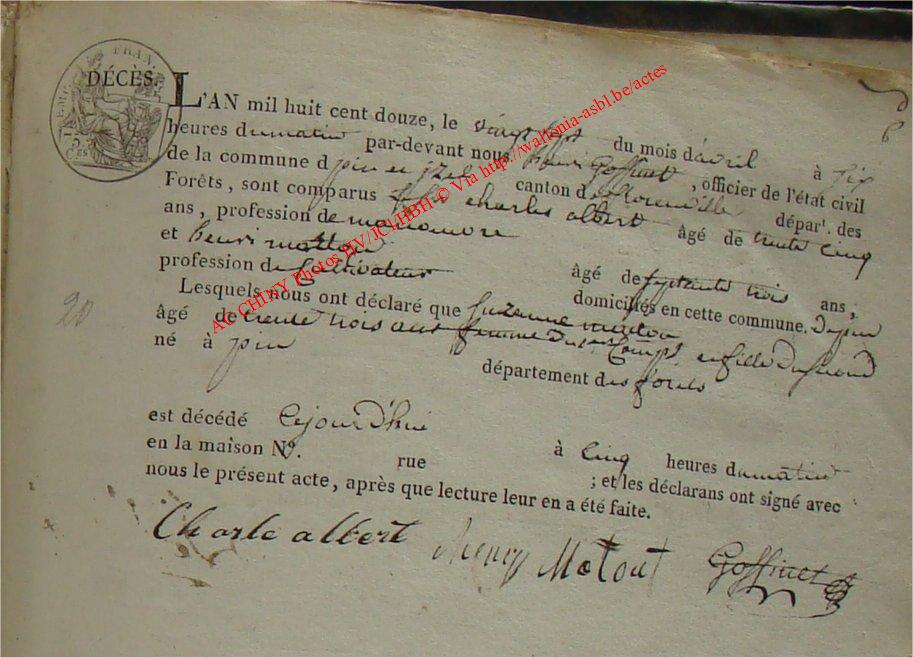 DÉCÈS.
L'AN mil huit cent douze, le vingt sept du mois d'avril à six
heures du matin par-devant nous henri Goffinet, officier de l'état civil
de la commune d pin et izel canton d florenville dépar^t. des
Forêts, sont comparus charles albert âgé de trente cinq
ans, profession de manoeuvre
et henri mattou âgé de septante trois ans,
profession de Cultivateur domiciliés en cette commune. Dupin
Lesquels nous ont déclaré que Suzanne mattou
âgé de trente trois ans femme du 1er Comp^t et fille du second
né à pin département des forêts
est décédé Cejourd'hui à Cinq heures du matin
en la maison N°. rue ; et les déclarans ont signé avec
nous le présent acte, après que lecture leur en a été faite.
Charle albert henry Matout Goffinet
20
AC CHINY Photos HV/JCI/HBH © Via http://wallonia-asbl.be/actes